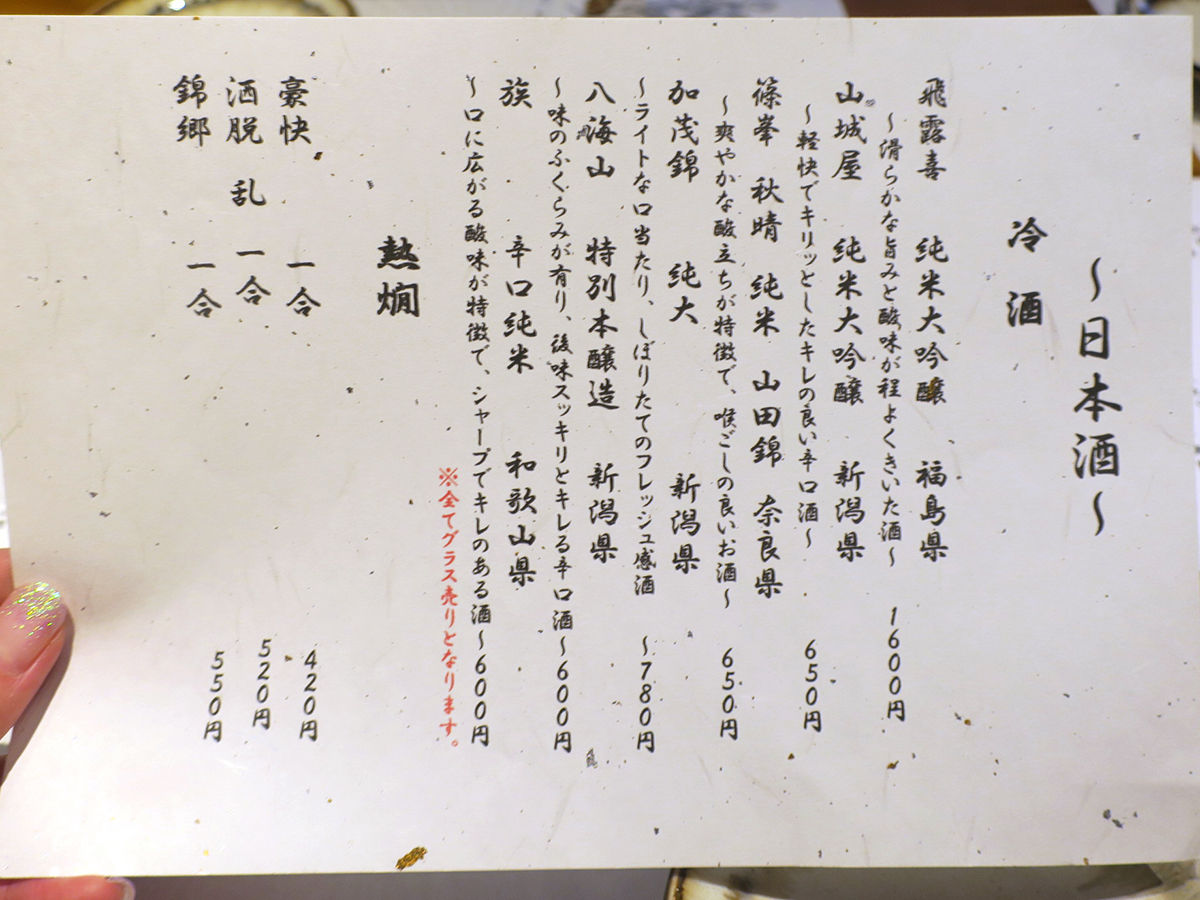 ～日本酒～
冷酒
飛露喜 純米大吟醸 福島県
～滑らかな旨みと酸味が程よくきいた酒～ 1600円
山城屋 純米大吟醸 新潟県
～軽快でキリッとしたキレの良い辛口酒～ 650円
篠峯 秋晴 純米 山田錦 奈良県
～爽やかな酸立ちが特徴で、喉ごしの良いお酒～ 650円
加茂錦 純大 新潟県
～ライトな口当たり、しぼりたてのフレッシュ感酒 ～780円
八海山 特別本醸造 新潟県
～味のふくらみが有り、後味スッキリとキレる辛口酒～600円
族 辛口純米 和歌山県
～口に広がる酸味が特徴で、シャープでキレのある酒～600円
※全てグラス売りとなります。
熱燗
豪快 一合 420円
洒脱 乱 一合 520円
錦郷 一合 550円